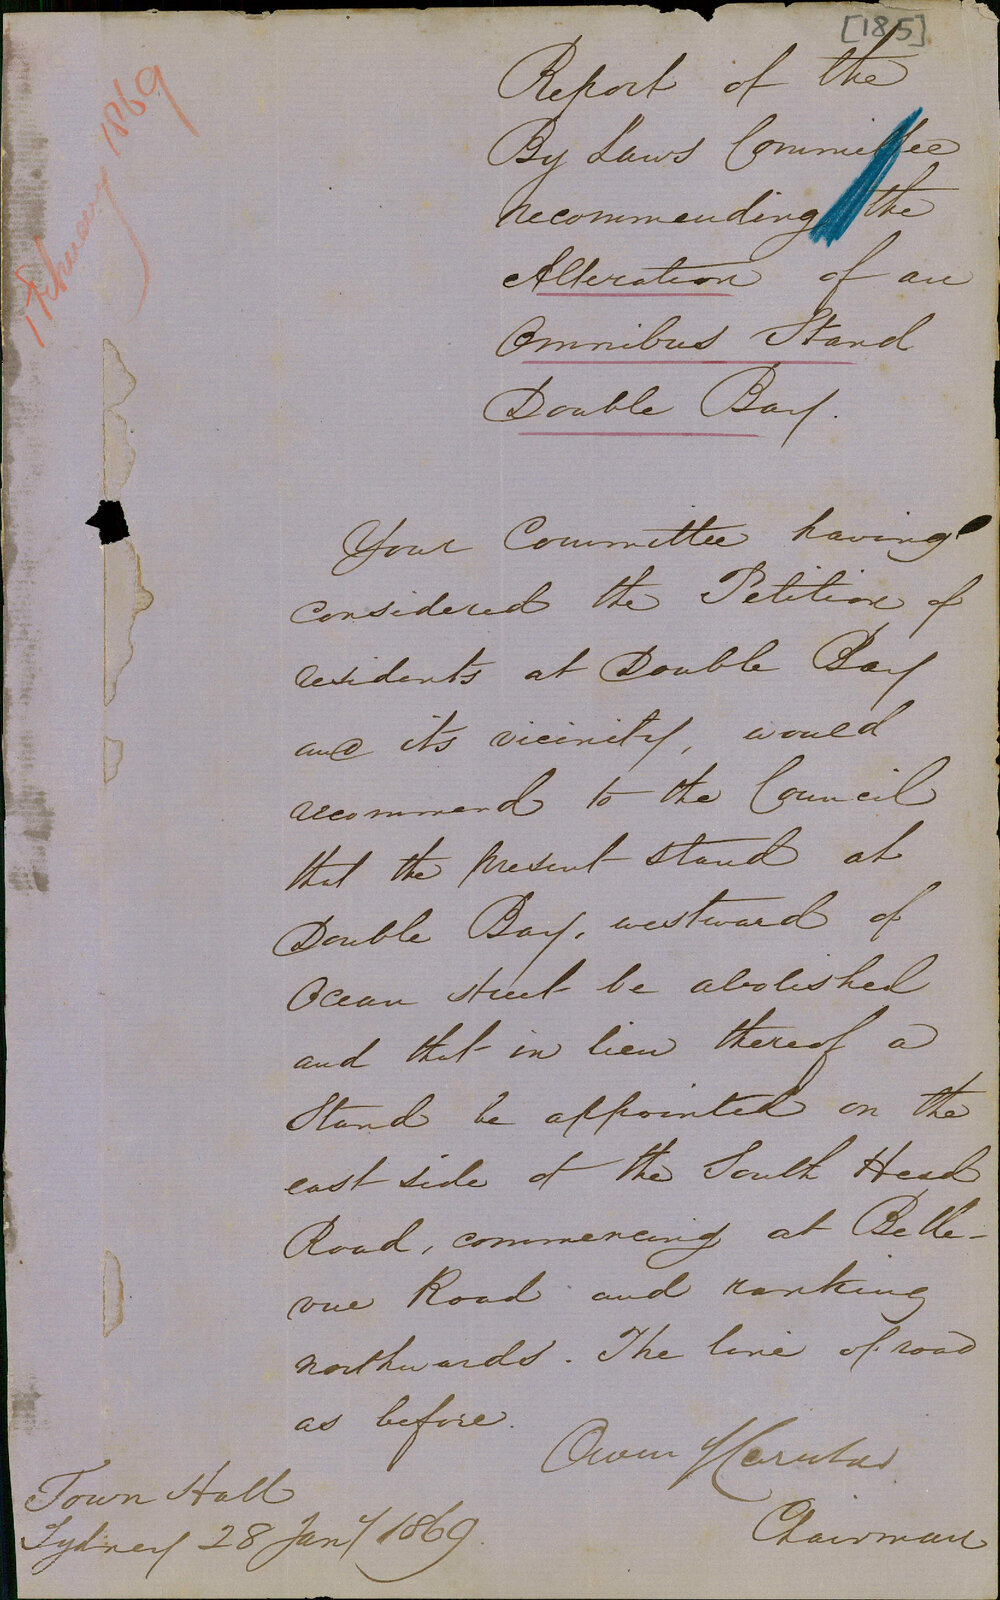 [185]
1 February 1869
Report of the
By Laws Committee
recommending the
Alteration of an
Omnibus Stand
Double Bay.
Your Committee having
considered the Petition of
residents at Double Bay
and its vicinity, would
recommend to the Council
that the present stand at
Double Bay, westward of
Ocean street be abolished
and that in lieu thereof a
Stand be appointed on the
east side of the South Head
Road, commencing at Belle-
vue Road and ranking
northwards. The line of road
as before.
Owen
Chairman
Town Hall
Sydney 28 Jany 1869.